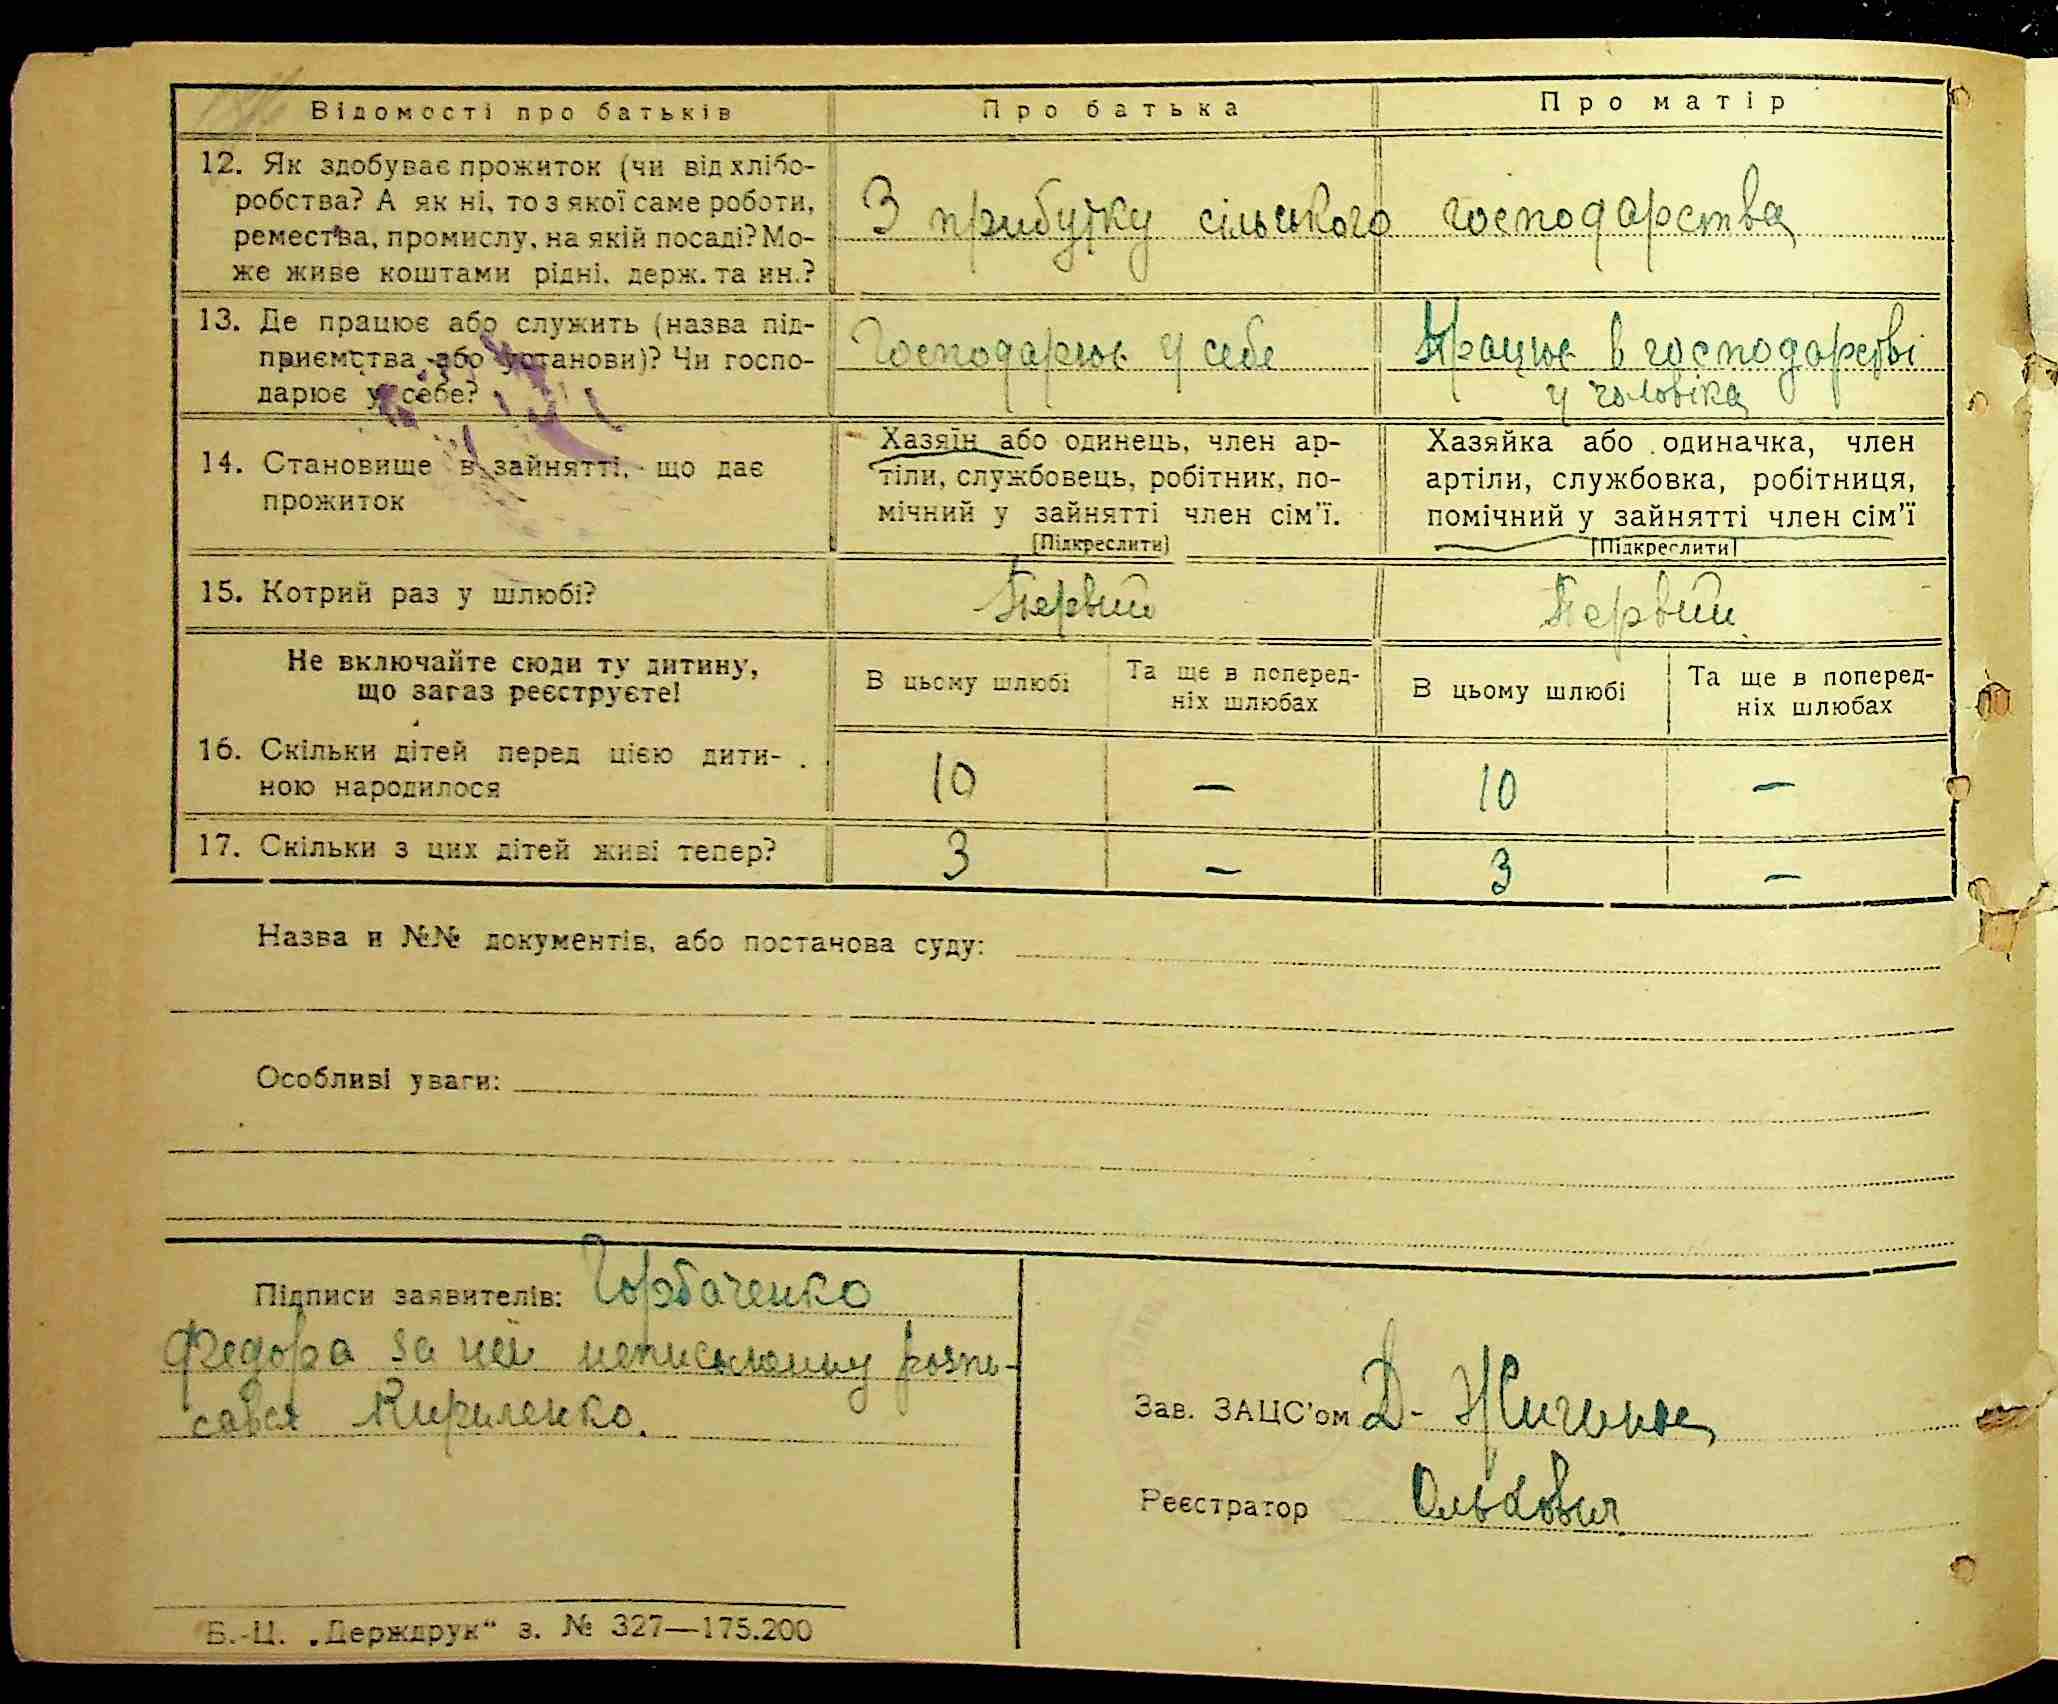 Відомості про батьків
Про батька
Про матір
12. Як здобуває прожиток (чи від хлібо-
робства? А як ні, то з якої саме роботи,
ремества, промислу, на якій посаді? Мо-
же живе коштами рідні, держ. та ин.?
З прибутку сільського господарства
13. Де працює або служить (назва під-
приємства або установи)? Чи госпо-
дарює у себе?
Господарює у себе
Працює в господарстві
у чоловіка
14. Становище в зайнятті, що дає
прожиток
Хазяїн або одинець, член ар-
тіли, службовець, робітник, по-
мічний у зайнятті член сім'ї.
[Підкреслити]
Хазяйка або одиначка, член
артіли, службовка, робітниця,
помічний у зайнятті член сім'ї
[Підкреслити]
15. Котрий раз у шлюбі?
Первий
Первий
Не включайте сюди ту дитину,
що зараз реєструєте!
В цьому шлюбі
Та ще в поперед-
ніх шлюбах
В цьому шлюбі
Та ще в поперед-
ніх шлюбах
16. Скільки дітей перед цією дити-
ною народилося
10
—
10
—
17. Скільки з цих дітей живі тепер?
3
—
3
—
Назва и №№ документів, або постанова суду:
Особливі уваги:
Підписи заявителів: Горбаченко
Федора за неї неписьменну розпи-
сався Кириленко.
Зав. ЗАЦС'ом Д.
Реєстратор
Б.-Ц. „Держдрук“ з. № 327—175.200